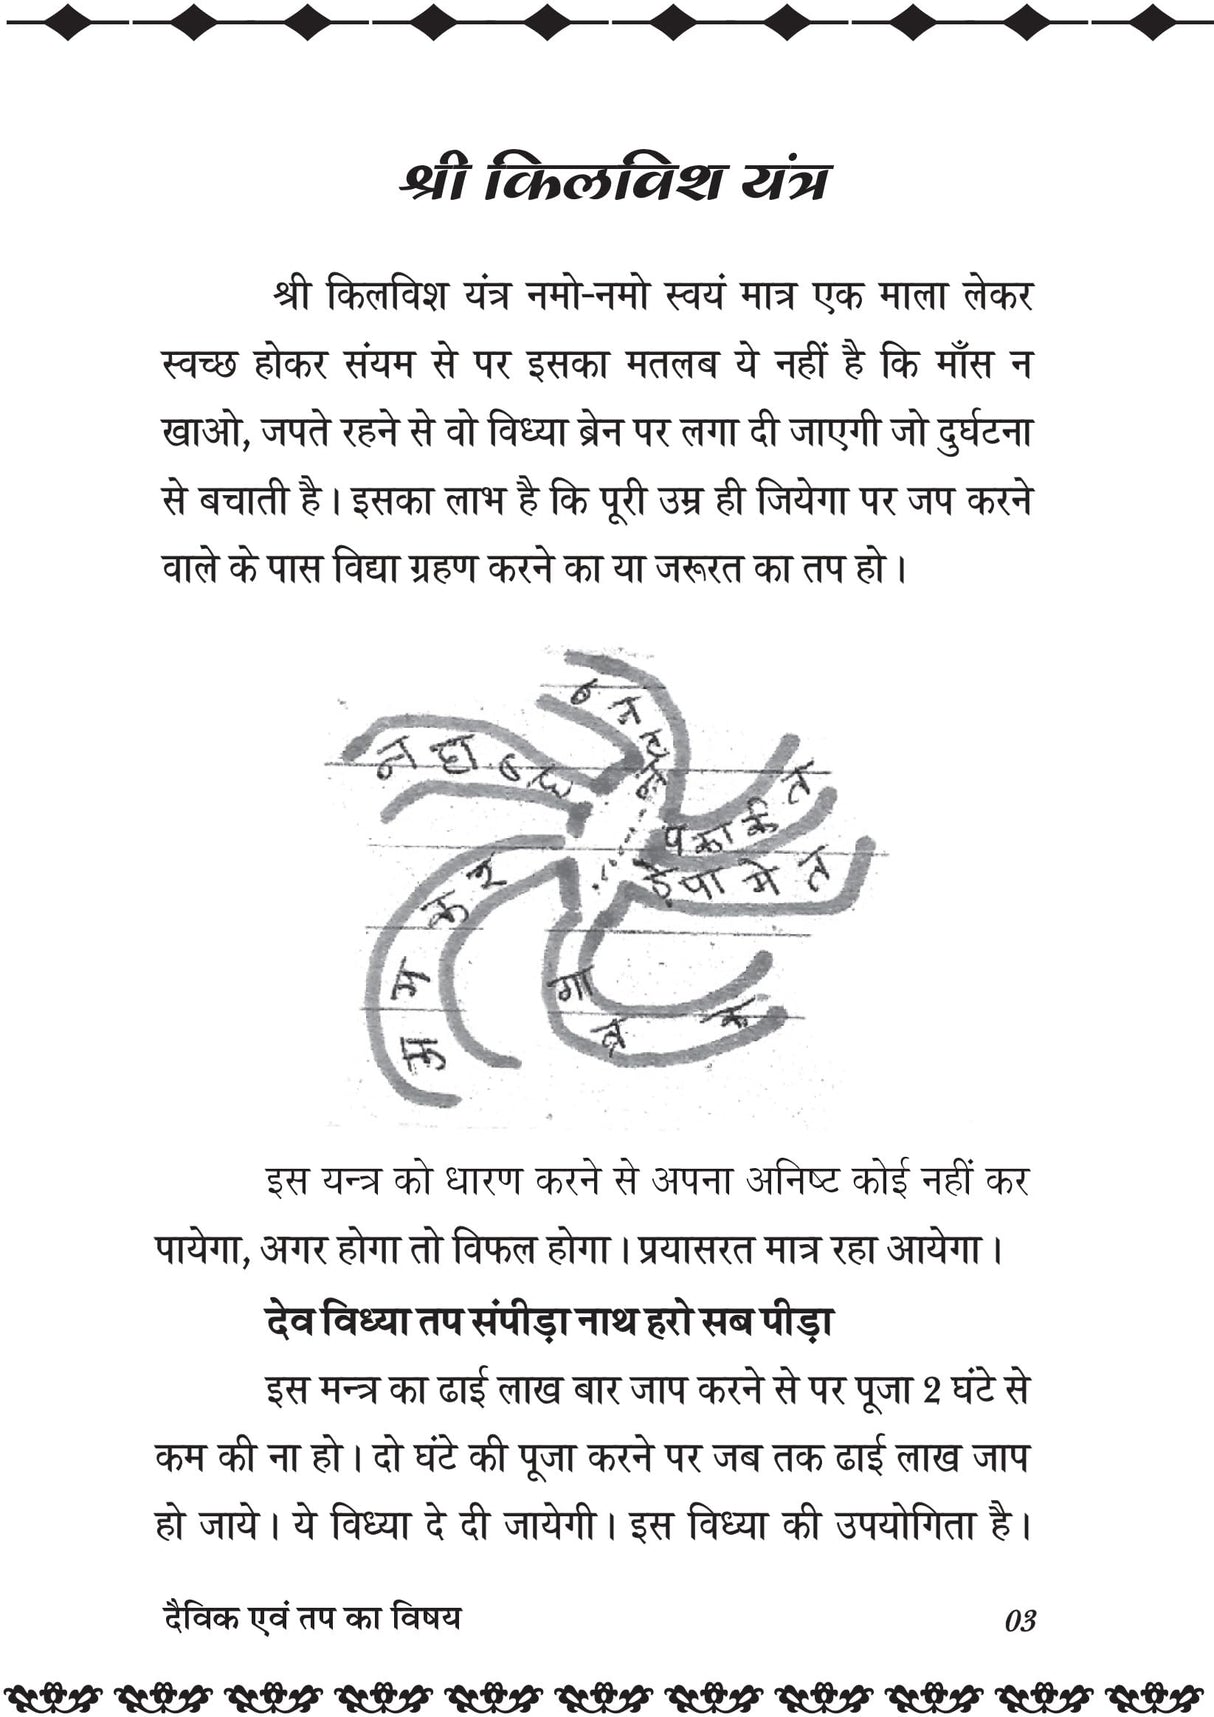 श्री किलविश यंत्र
श्री किलविश यंत्र नमो-नमो स्वयं मात्र एक माला लेकर
स्वच्छ होकर संयम से पर इसका मतलब ये नहीं है कि माँस न
खाओ, जपते रहने से वो विध्या ब्रेन पर लगा दी जाएगी जो दुर्घटना
से बचाती है। इसका लाभ है कि पूरी उम्र ही जियेगा पर जप करने
वाले के पास विद्या ग्रहण करने का या जरूरत का तप हो।
प का र्क त
पा मे त
र
क
म
गा
क
इस यन्त्र को धारण करने से अपना अनिष्ट कोई नहीं कर
पायेगा, अगर होगा तो विफल होगा। प्रयासरत मात्र रहा आयेगा।
देव विध्या तप संपीड़ा नाथ हरो सब पीड़ा
इस मन्त्र का ढाई लाख बार जाप करने से पर पूजा 2 घंटे से
कम की ना हो। दो घंटे की पूजा करने पर जब तक ढाई लाख जाप
हो जाये। ये विध्या दे दी जायेगी। इस विध्या की उपयोगिता है।
दैविक एवं तप का विषय
03